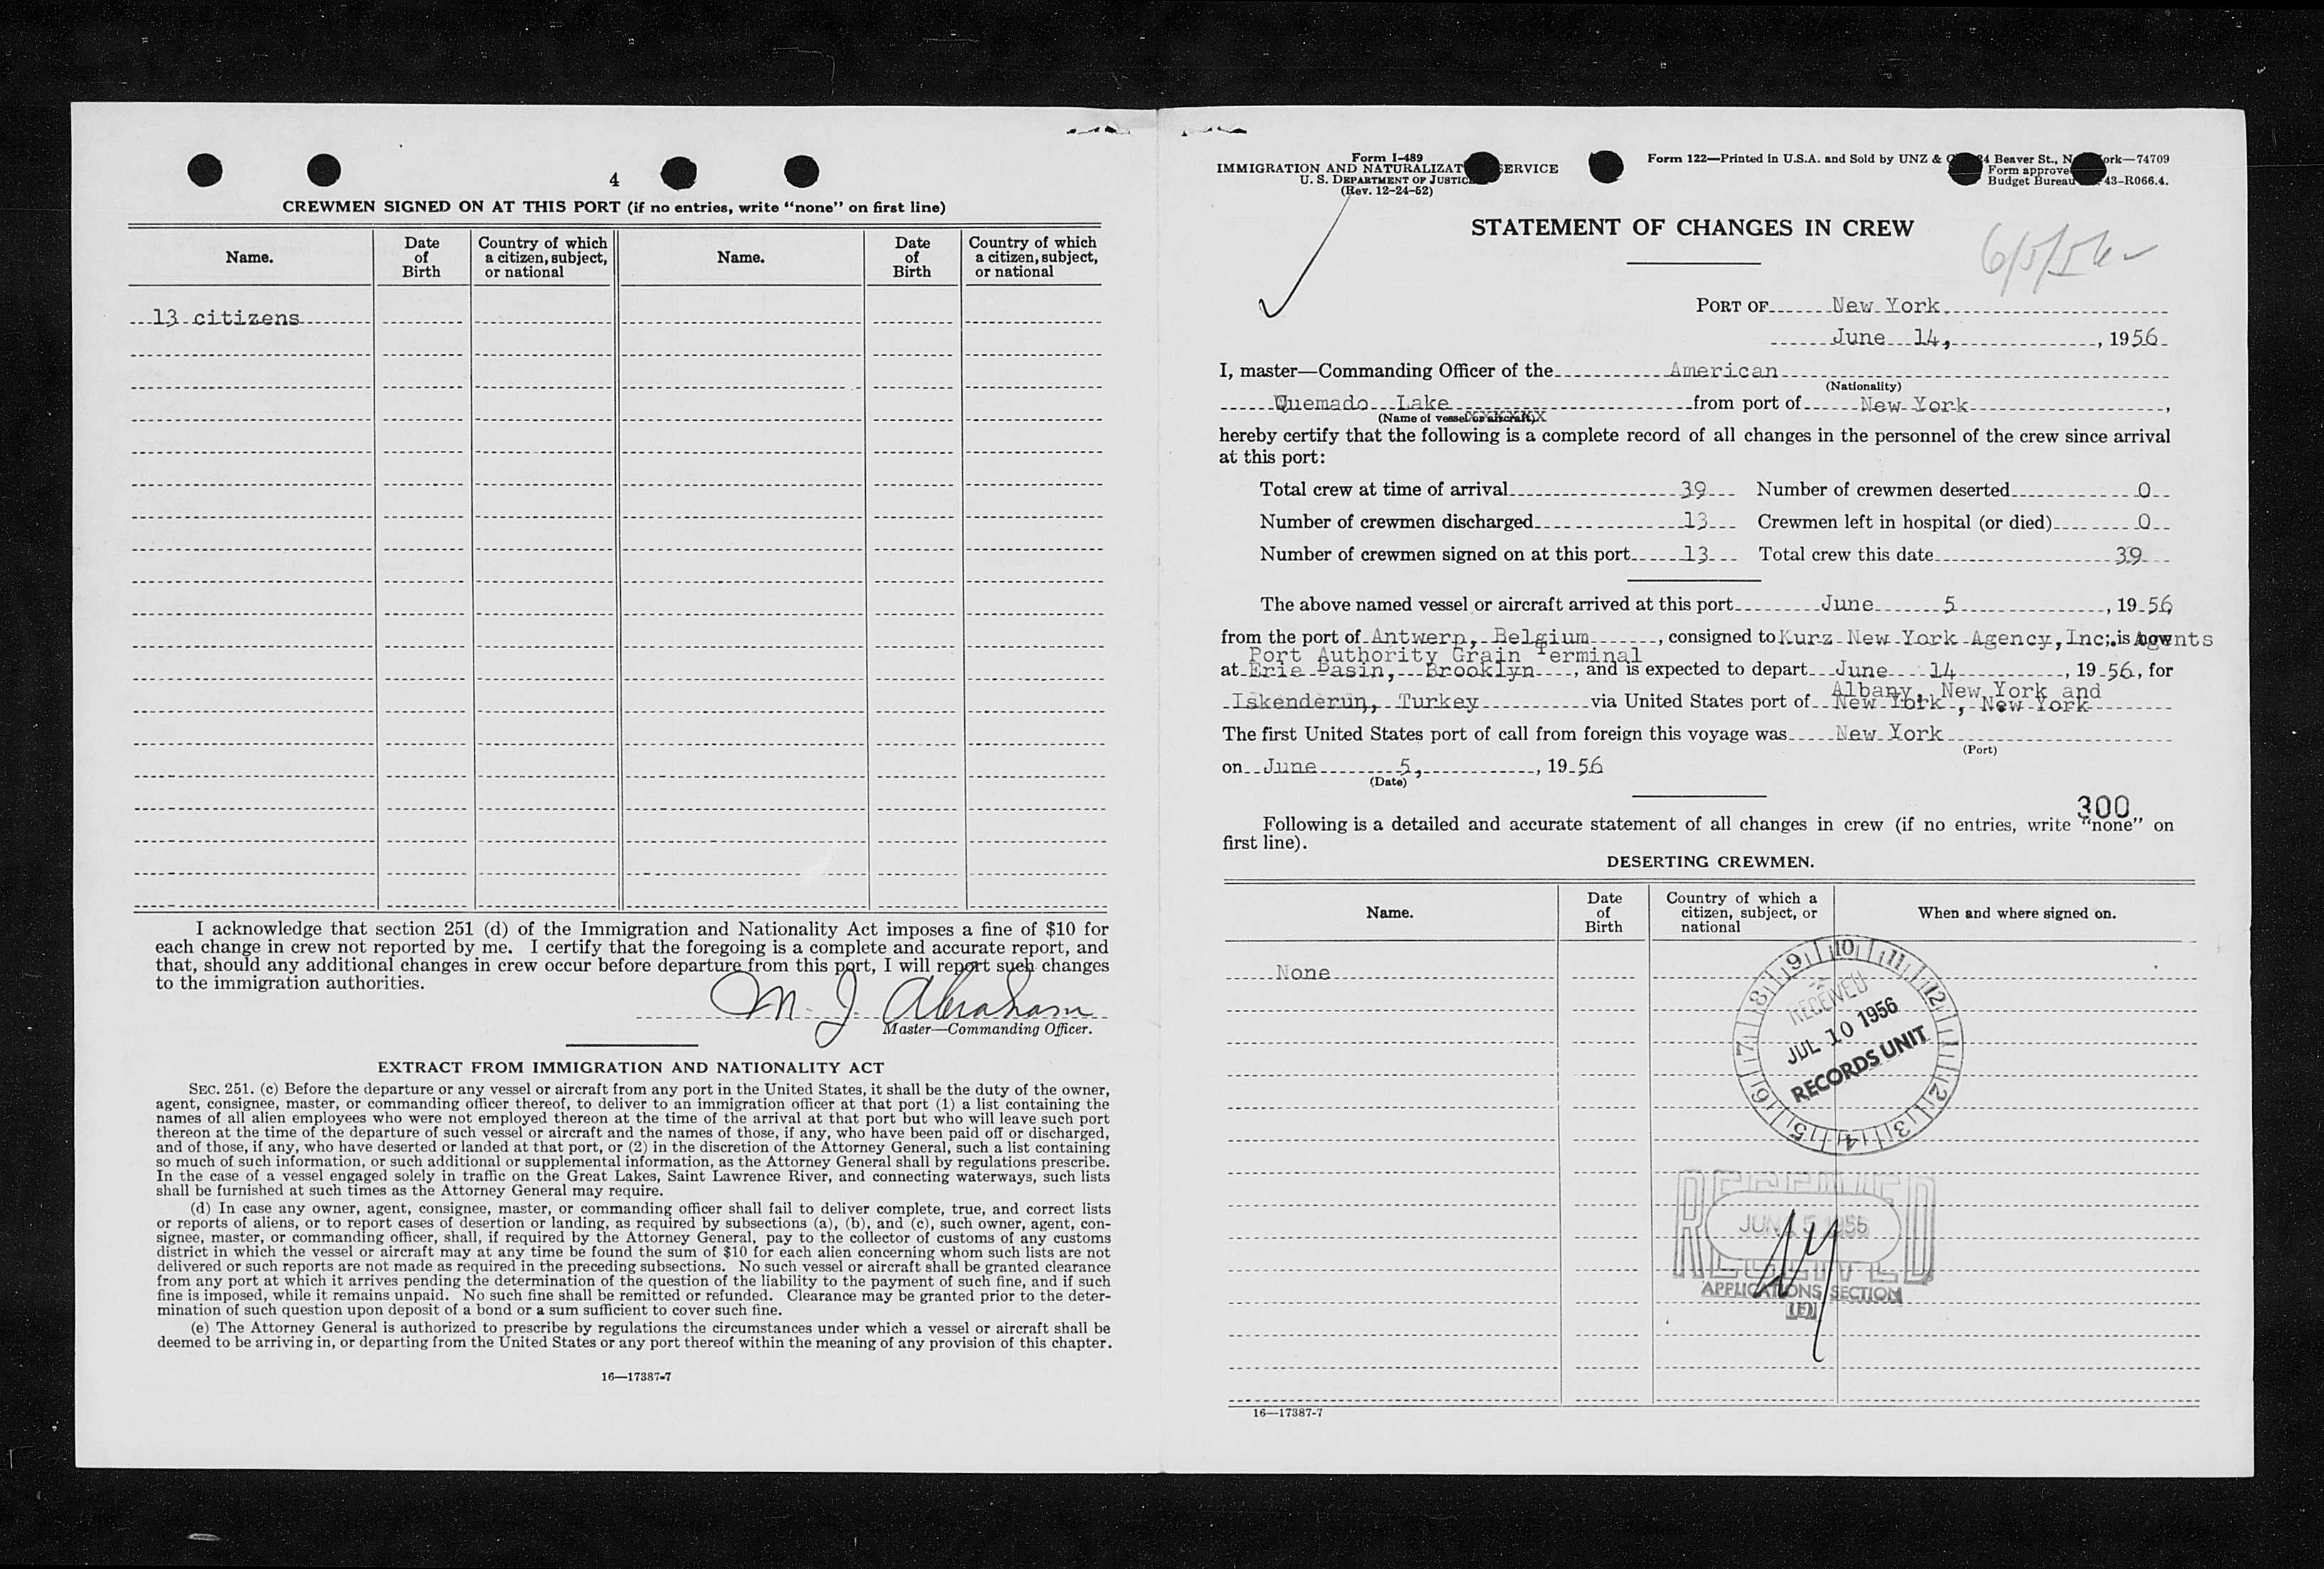 4
CREWMEN SIGNED ON AT THIS PORT (if no entries, write “none” on first line)
Name. Date of Birth Country of which a citizen, subject, or national Name. Date of Birth Country of which a citizen, subject, or national
13 citizens
I acknowledge that section 251 (d) of the Immigration and Nationality Act imposes a fine of $10 for
each change in crew not reported by me. I certify that the foregoing is a complete and accurate report, and
that, should any additional changes in crew occur before departure from this port, I will report such changes
to the immigration authorities.
M. J. Abraham
Master—Commanding Officer.
EXTRACT FROM IMMIGRATION AND NATIONALITY ACT
SEC. 251. (c) Before the departure or any vessel or aircraft from any port in the United States, it shall be the duty of the owner,
agent, consignee, master, or commanding officer thereof, to deliver to an immigration officer at that port (1) a list containing the
names of all alien employees who were not employed thereon at the time of the arrival at that port but who will leave such port
thereon at the time of the departure of such vessel or aircraft and the names of those, if any, who have been paid off or discharged,
and of those, if any, who have deserted or landed at that port, or (2) in the discretion of the Attorney General, such a list containing
so much of such information, or such additional or supplemental information, as the Attorney General shall by regulations prescribe.
In the case of a vessel engaged solely in traffic on the Great Lakes, Saint Lawrence River, and connecting waterways, such lists
shall be furnished at such times as the Attorney General may require.
(d) In case any owner, agent, consignee, master, or commanding officer shall fail to deliver complete, true, and correct lists
or reports of aliens, or to report cases of desertion or landing, as required by subsections (a), (b), and (c), such owner, agent, con-
signee, master, or commanding officer, shall, if required by the Attorney General, pay to the collector of customs of any customs
district in which the vessel or aircraft may at any time be found the sum of $10 for each alien concerning whom such lists are not
delivered or such reports are not made as required in the preceding subsections. No such vessel or aircraft shall be granted clearance
from any port at which it arrives pending the determination of the question of the liability to the payment of such fine, and if such
fine is imposed, while it remains unpaid. No such fine shall be remitted or refunded. Clearance may be granted prior to the deter-
mination of such question upon deposit of a bond or a sum sufficient to cover such fine.
(e) The Attorney General is authorized to prescribe by regulations the circumstances under which a vessel or aircraft shall be
deemed to be arriving in, or departing from the United States or any port thereof within the meaning of any provision of this chapter.
16—17387-7
Form I-489
IMMIGRATION AND NATURALIZAT SERVICE
U. S. DEPARTMENT OF JUSTIC
(Rev. 12-24-52)
Form 122—Printed in U.S.A. and Sold by UNZ & C 24 Beaver St., N ork—74709
Form approve
Budget Bureau 43-R066.4.
STATEMENT OF CHANGES IN CREW
6/5/56
PORT OF New York
June 14, , 1956
I, master—Commanding Officer of the American
(Nationality)
Quemado Lake from port of New York,
(Name of vessel or aircraft)
hereby certify that the following is a complete record of all changes in the personnel of the crew since arrival
at this port:
Total crew at time of arrival 39 Number of crewmen deserted 0
Number of crewmen discharged 13 Crewmen left in hospital (or died) 0
Number of crewmen signed on at this port 13 Total crew this date 39
The above named vessel or aircraft arrived at this port June 5 , 1956
from the port of Antwerp, Belgium, consigned to Kurz New York Agency, Inc. Agents; is now
Port Authority Grain Terminal
at Erie Basin, Brooklyn, and is expected to depart June 14 , 1956, for
Albany, New York and
Iskenderun, Turkey via United States port of New York, New York
The first United States port of call from foreign this voyage was New York
(Port)
on June 5, , 1956
(Date)
300
Following is a detailed and accurate statement of all changes in crew (if no entries, write “none” on
first line).
DESERTING CREWMEN.
Name. Date of Birth Country of which a citizen, subject, or national When and where signed on.
None
9 10 11 12 1 2 3 4 5 6 7 8
RECEIVED
JUL 10 1956
RECORDS UNIT
RECEIVED
JUN 15 1956
APPLICATIONS SECTION
(E)
16—17387-7